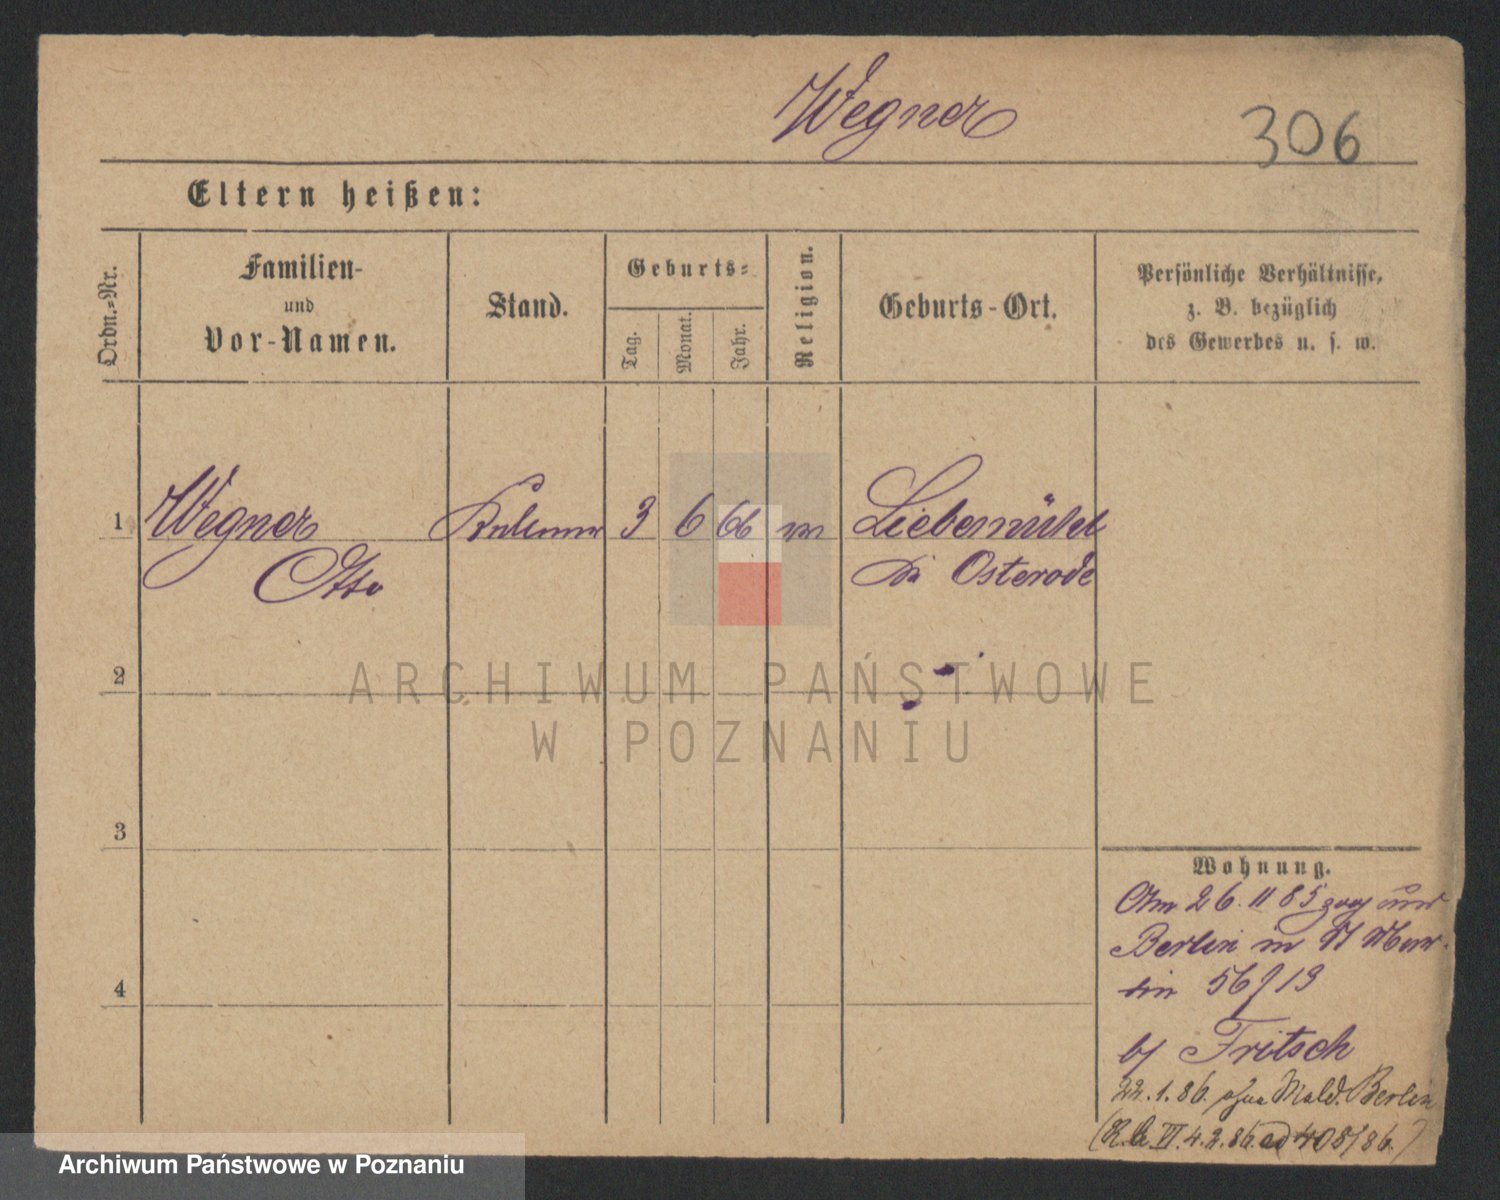 Wegner
306
Eltern heißen:
Ordn.-Nr.
Familien-
und
Vor-Namen.
Stand.
Geburts-
Tag.
Monat.
Jahr.
Religion.
Geburts-Ort.
Persönliche Verhältnisse,
z. B. bezüglich
des Gewerbes u. s. w.
1 Wegner 3 6 66 Liebemühl
Otto Osterode
2
3
4
ARCHIWUM PAŃSTWOWE
W POZNANIU
Wohnung.
Am 26. 11 85 zog
Berlin in St Mar-
tin 56/
b/ Fritsch
22.1.86. ohne Meld. Berlin
4.2.86. ad 408/86.)
Archiwum Państwowe w Poznaniu